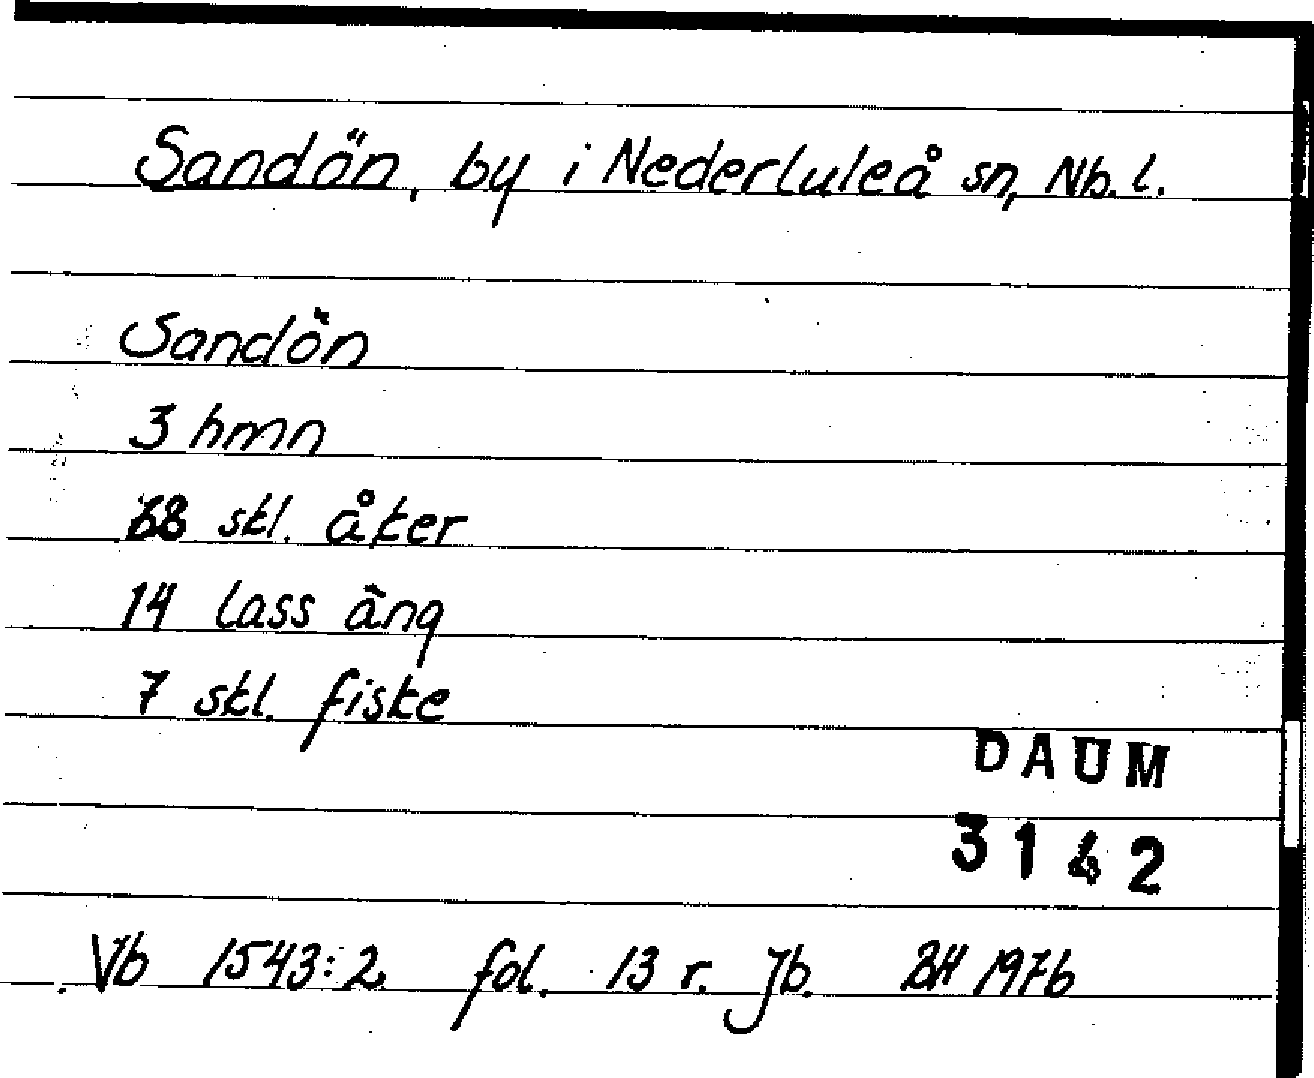 Sandön, by i Nederluleå sn, Nb. l.
Sandön
3 hmn
68 skl. åker
14 lass äng
7 skl. fiske
DAUM
3142
Vb 1543:2 fol. 13 r. Jb. BH 1976